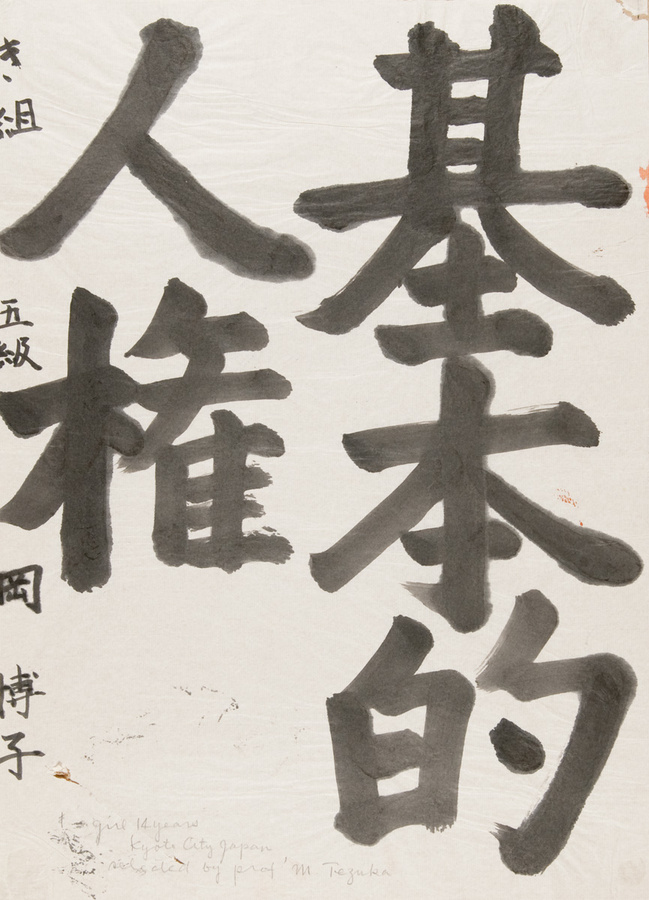 基本的
人権
き組 五級 岡 博子
girl 14 years
Kyoto City Japan
selected by prof M Tezuka